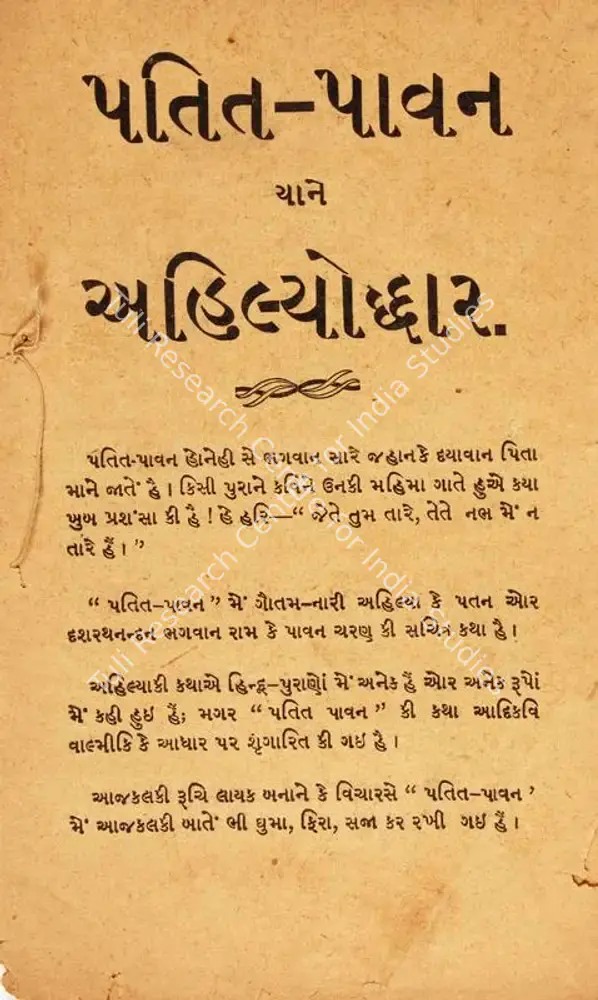 પતિત–પાવન
યાને
અહિલ્યોદ્ધાર.
પતિત-પાવન હોનેહી સે ભગવાન સારે જહાનકે દયાવાન પિતા
માને જાતેં હૈ । કિસી પુરાને કવિને ઉનકી મહિમા ગાતે હુએ કયા
ખુબ પ્રશંસા કી હૈ ! હે હરિ—“ જેતે તુમ તારે, તેતે નભ મેં ન
તારે હૈં । ”
“ પતિત–પાવન ” મેં ગૌતમ–નારી અહિલ્યા કે પતન ઓર
દશરથનન્દન ભગવાન રામ કે પાવન ચરણ કી સચિત્ર કથા હૈ ।
અહિલ્યાકી કથાએ હિન્દૂ–પુરાણોં મેં અનેક હૈં ઓર અનેક રૂપોં
મેં કહી હુઇ હૈં; મગર “ પતિત પાવન ” કી કથા આદિકવિ
વાલ્મીકિ કે આધાર પર શૃંગારિત કી ગઇ હૈ ।
આજકલકી રૂચિ લાયક બનાને કે વિચારસે “ પતિત–પાવન ’
મેં આજકલકી બાતેં ભી ઘુમા, ફિરા, સજા કર રખી ગઇ હૈં ।
Tuli Research Centre for India Studies
Tuli Research Centre for India Studies